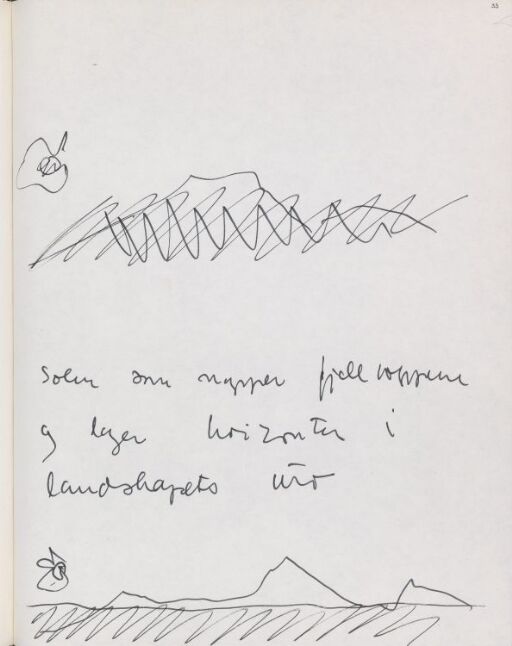 33
Solen som napper fjelltoppene
og lager horizonter i
landskapets uro